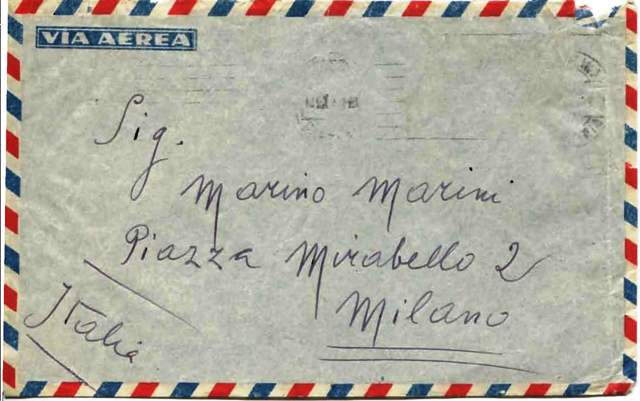 VIA AEREA
Sig.
Marino Marini
Piazza Mirabello 2
Milano
Italia